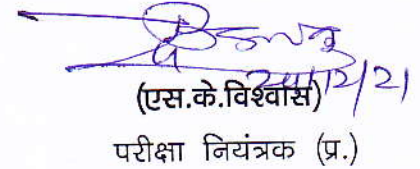 24/12/21
(एस.के.विश्वास)
परीक्षा नियंत्रक (प्र.)